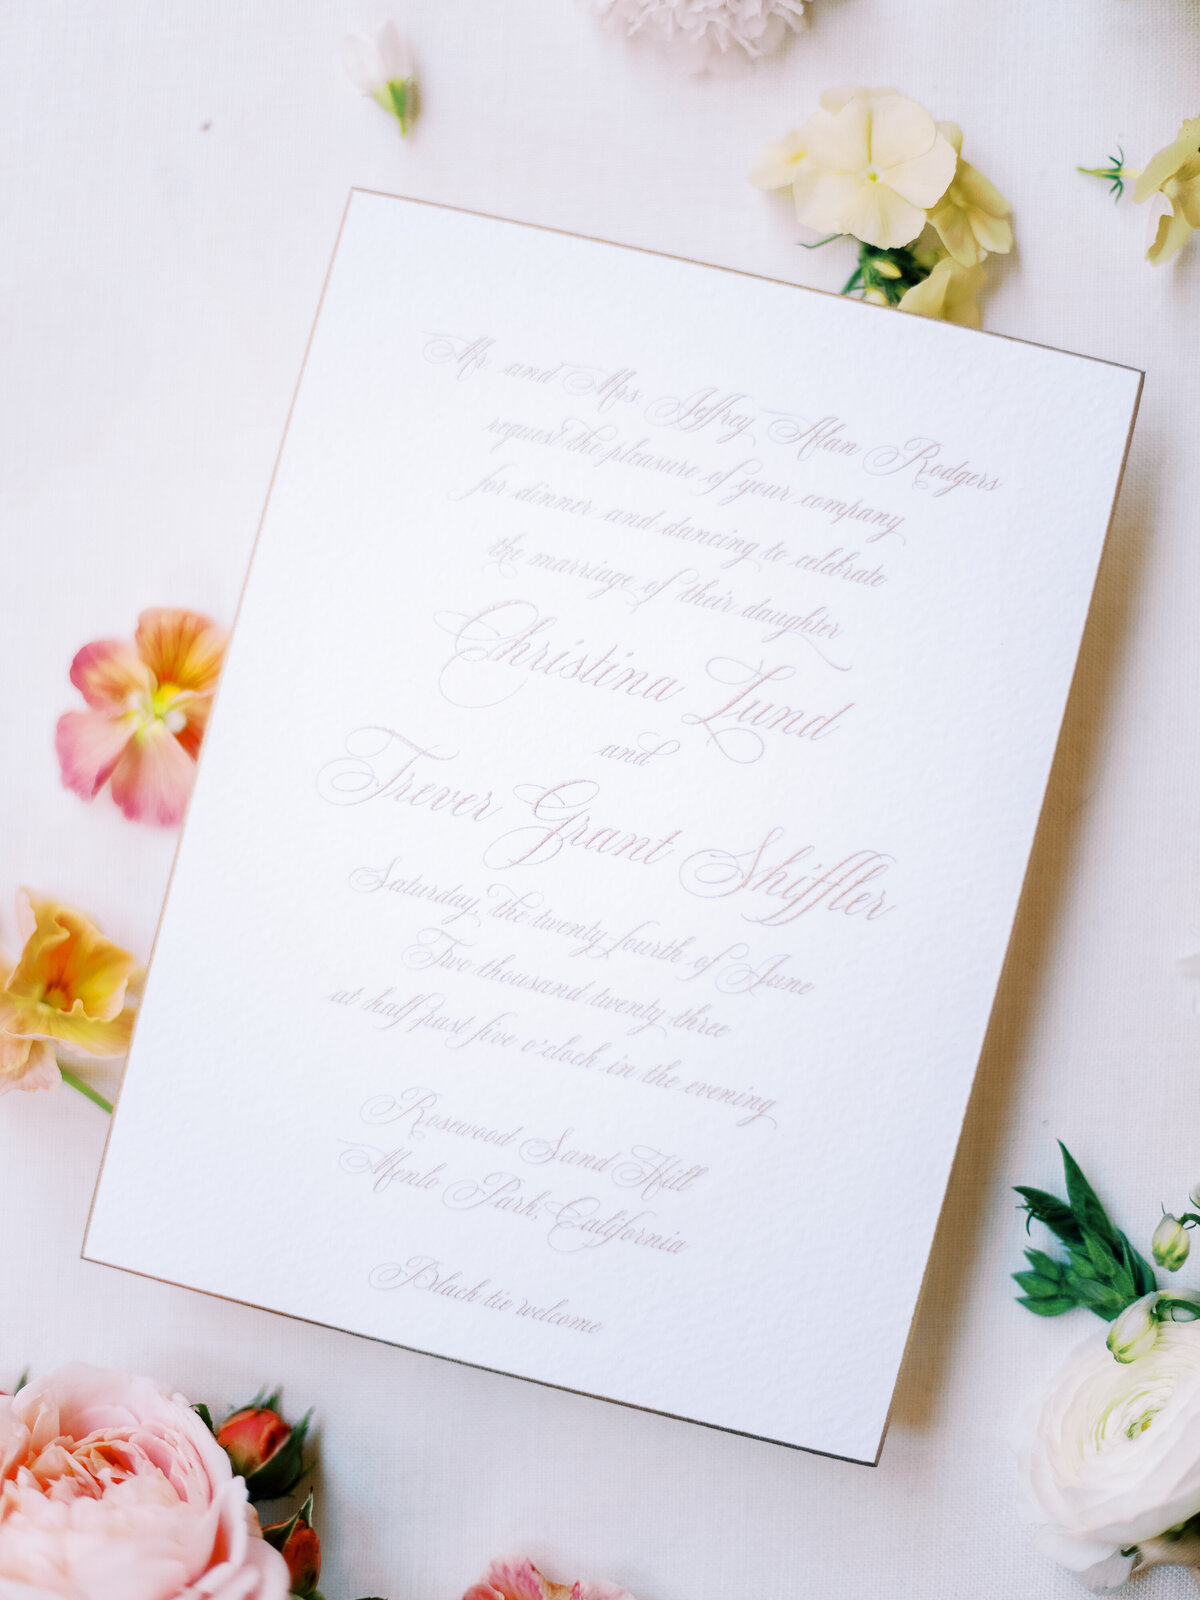 Mr. and Mrs. Jeffrey Alan Rodgers
request the pleasure of your company
for dinner and dancing to celebrate
the marriage of their daughter
Christina Lund
and
Trever Grant Shiffler
Saturday, the twenty-fourth of June
Two thousand twenty-three
at half past five o'clock in the evening
Rosewood Sand Hill
Menlo Park, California
Black tie welcome